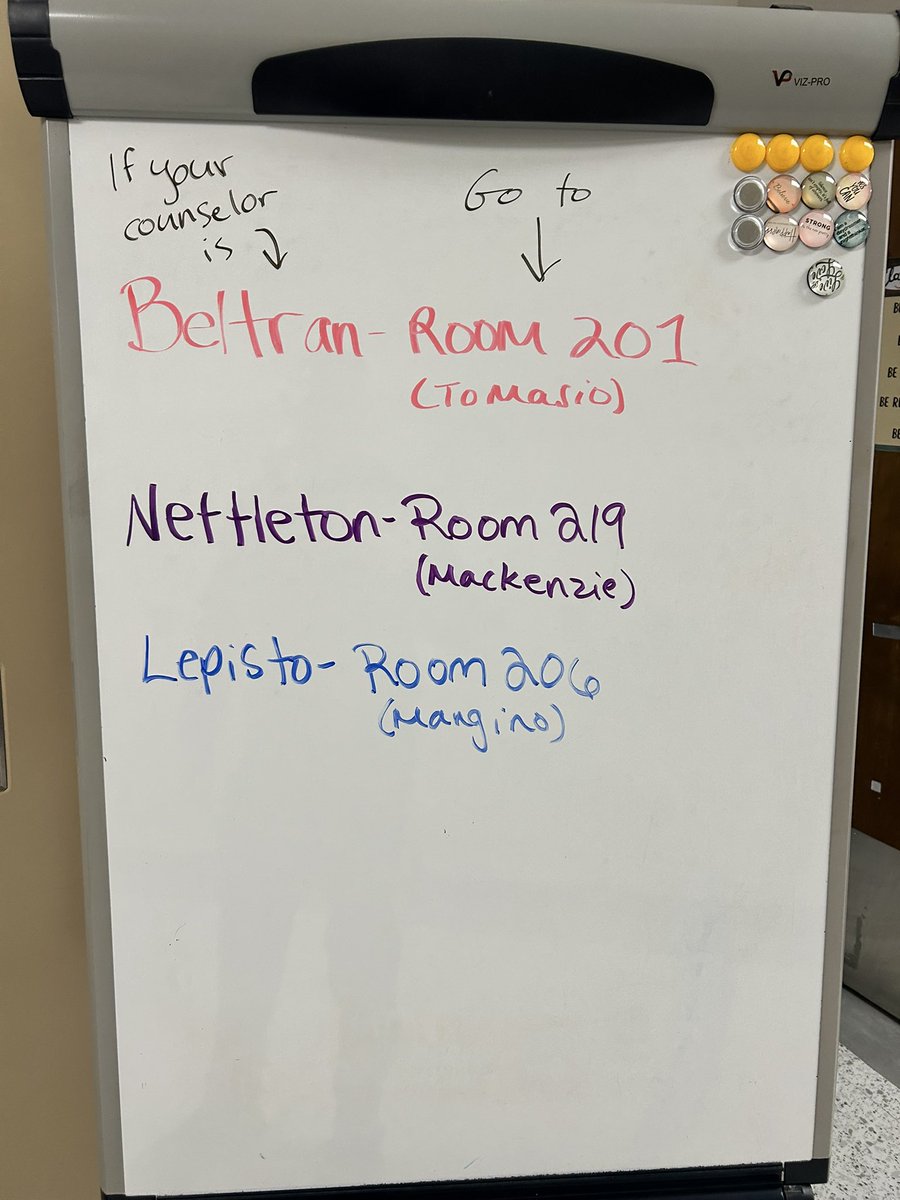 VP VIZ-PRO
If your
counselor
is
Go to
Beltran- Room 201
(ToMasio)
Nettleton- Room 219
(Mackenzie)
Lepisto- Room 206
(Mangino)
Believe
YES
YOU
CAN
STRONG
BE
BE
BE RE
BE